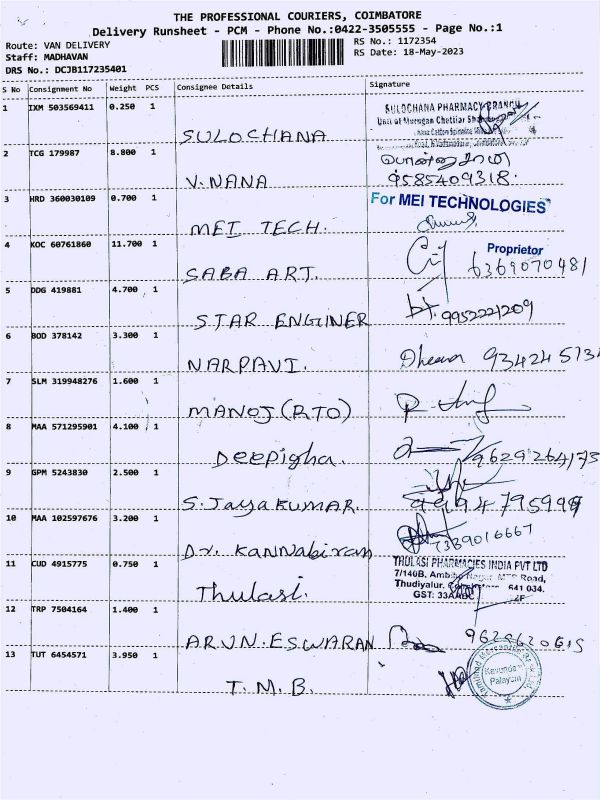 THE PROFESSIONAL COURIERS, COIMBATORE
Delivery Runsheet - PCM - Phone No.:0422-3505555 - Page No.:1
Route: VAN DELIVERY
RS No.: 1172354
Staff: MADHAVAN
RS Date: 18-May-2023
DRS No.: DCJB117235401
S No Consignment No Weight PCS Consignee Details Signature
1 IXM 503569411 0.250 1
SULOCHANA PHARMACY BRANCH
Unit of Murugan Chettiar
SULOCHANA
2 TCG 179987 8.800 1
9585409318.
V.NANA
3 HRD 360030109 0.700 1
For MEI TECHNOLOGIES
MEI TECH.
4 KOC 60761860 11.700 1
Proprietor
6369070481
SABA ART.
5 DDG 419881 4.700 1
9952221209
STAR ENGINER
6 BOD 378142 3.300 1
NARPAVI.
7 SLM 319948276 1.600 1
MANOJ (RTO)
8 MAA 571295901 4.100 1
9629264173
Deepigha.
9 GPM 5243830 2.500 1
S.JayaKUMAR.
10 MAA 102597676 3.200 1
Dr. Kannabiram
11 CUD 4915775 0.750 1
THULASI PHARMACIES INDIA PVT LTD
7/140B, Road,
Thudiyalur, 641 034.
GST:
Thulasi.
12 TRP 7504164 1.400 1
ARUN.ESWARAN
13 TUT 6454571 3.950 1
Palayam
T.M.B.